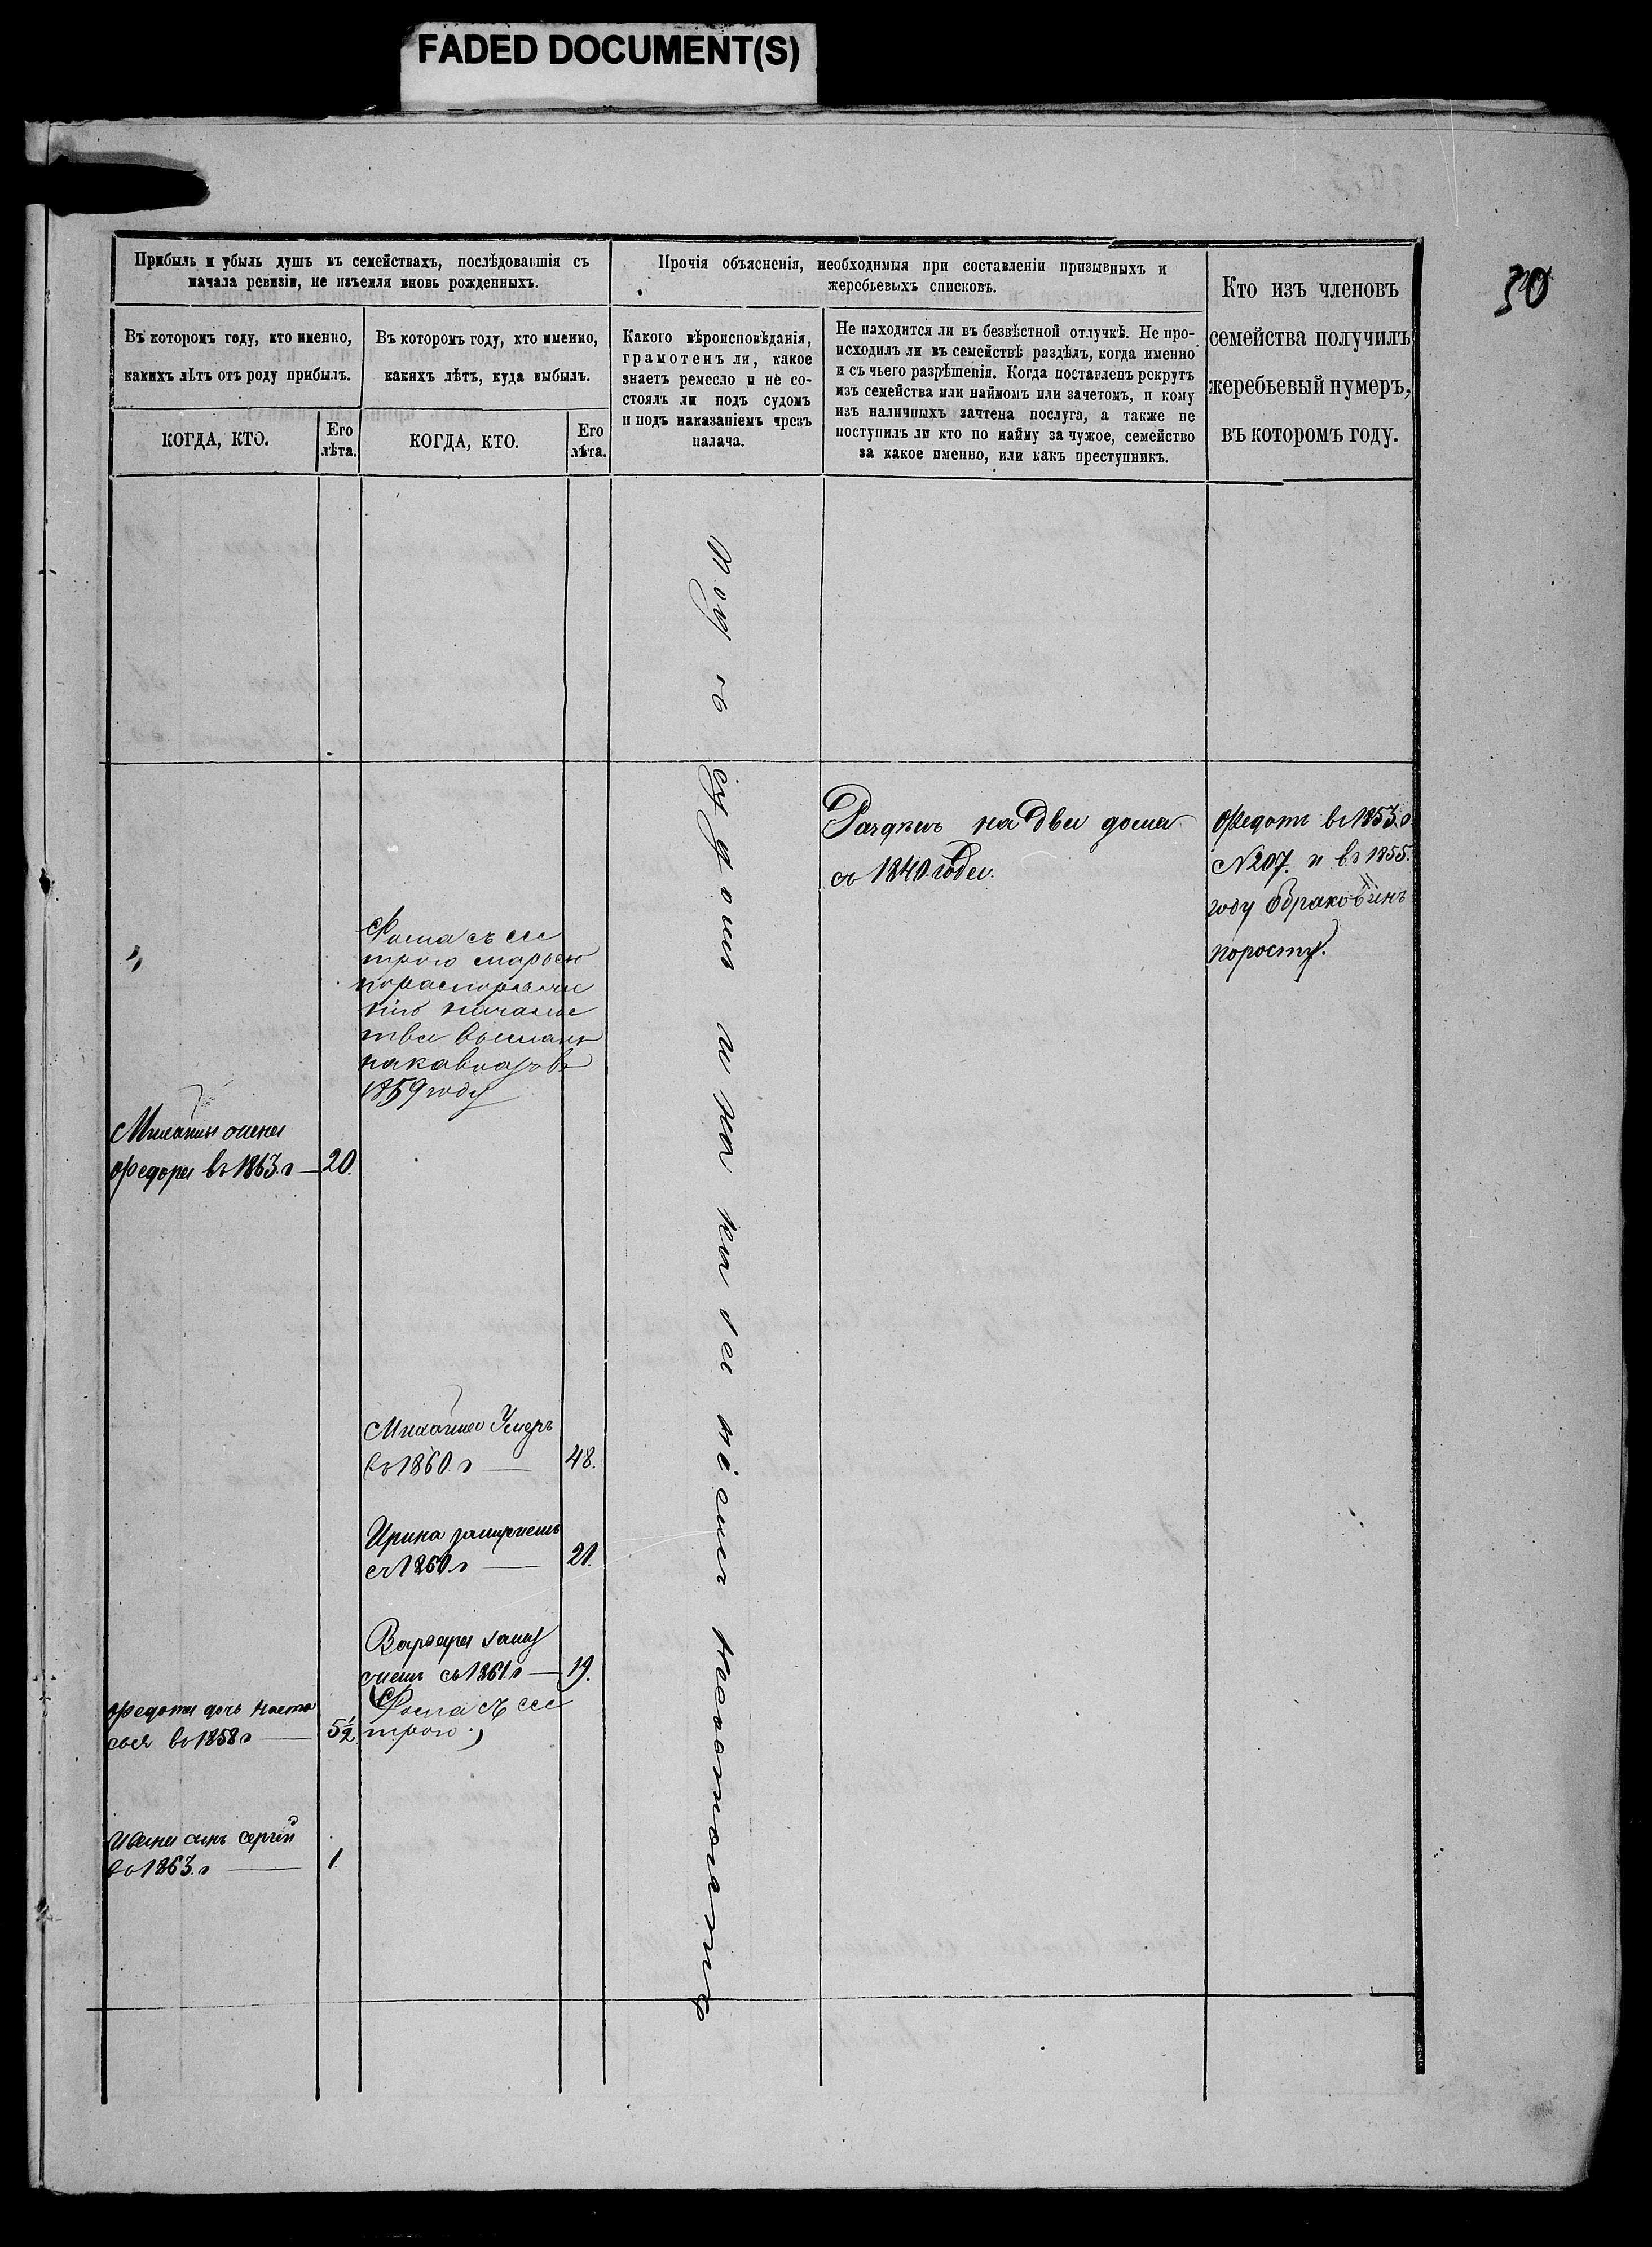 FADED DOCUMENT(S)
30
Прибыль и убыль душъ въ семействахъ, послѣдовавшія съ
начала ревизіи, не изъемля вновь рожденныхъ.
Въ которомъ году, кто именно,
какихъ лѣтъ отъ роду прибылъ.
КОГДА, КТО.
Его
лѣта.
Въ которомъ году, кто именно,
какихъ лѣтъ, куда выбылъ.
КОГДА, КТО.
Его
лѣта.
Прочія объясненія, необходимыя при составленіи призывныхъ и
жеребьевыхъ списковъ.
Какого вѣроисповѣданія,
грамотенъ ли, какое
знаетъ ремесло и не со-
стоялъ ли подъ судомъ
и подъ наказаніемъ чрезъ
палача.
Не находится ли въ безвѣстной отлучкѣ. Не про-
исходилъ ли въ семействѣ раздѣлъ, когда именно
и съ чьего разрѣшенія. Когда поставленъ рекрутъ
изъ семейства или наймомъ или зачетомъ, и кому
изъ наличныхъ зачтена послуга, а также не
поступилъ ли кто по найму за чужое, семейство
за какое именно, или какъ преступникъ.
Кто изъ членовъ
семейства получилъ
жеребьевый нумеръ,
въ которомъ году.
Михаины
Федора въ 1863.г — 20.
Федота дочь Наста
сья въ 1858г — 5½
Ивана сынъ Сергѣй
въ 1863.г — 1.
Фома съ сес
трою Марьею
по распоряже
нію начальс
тва высланъ
на кавказъ въ
1859 году
Михаило Умеръ
въ 1860.г — 48.
Ирина замужемъ
съ 1860.г — 21.
Варвара заму
жемъ съ 1861.г — 19.
Фома съ сес
трою
Подъ судомъ и наказаніемъ несостоялъ
Раздѣлъ на Два дома
съ 1840. года.
Федотъ въ 1853.г
N207. и въ 1855.
году Обракованъ
поросту.